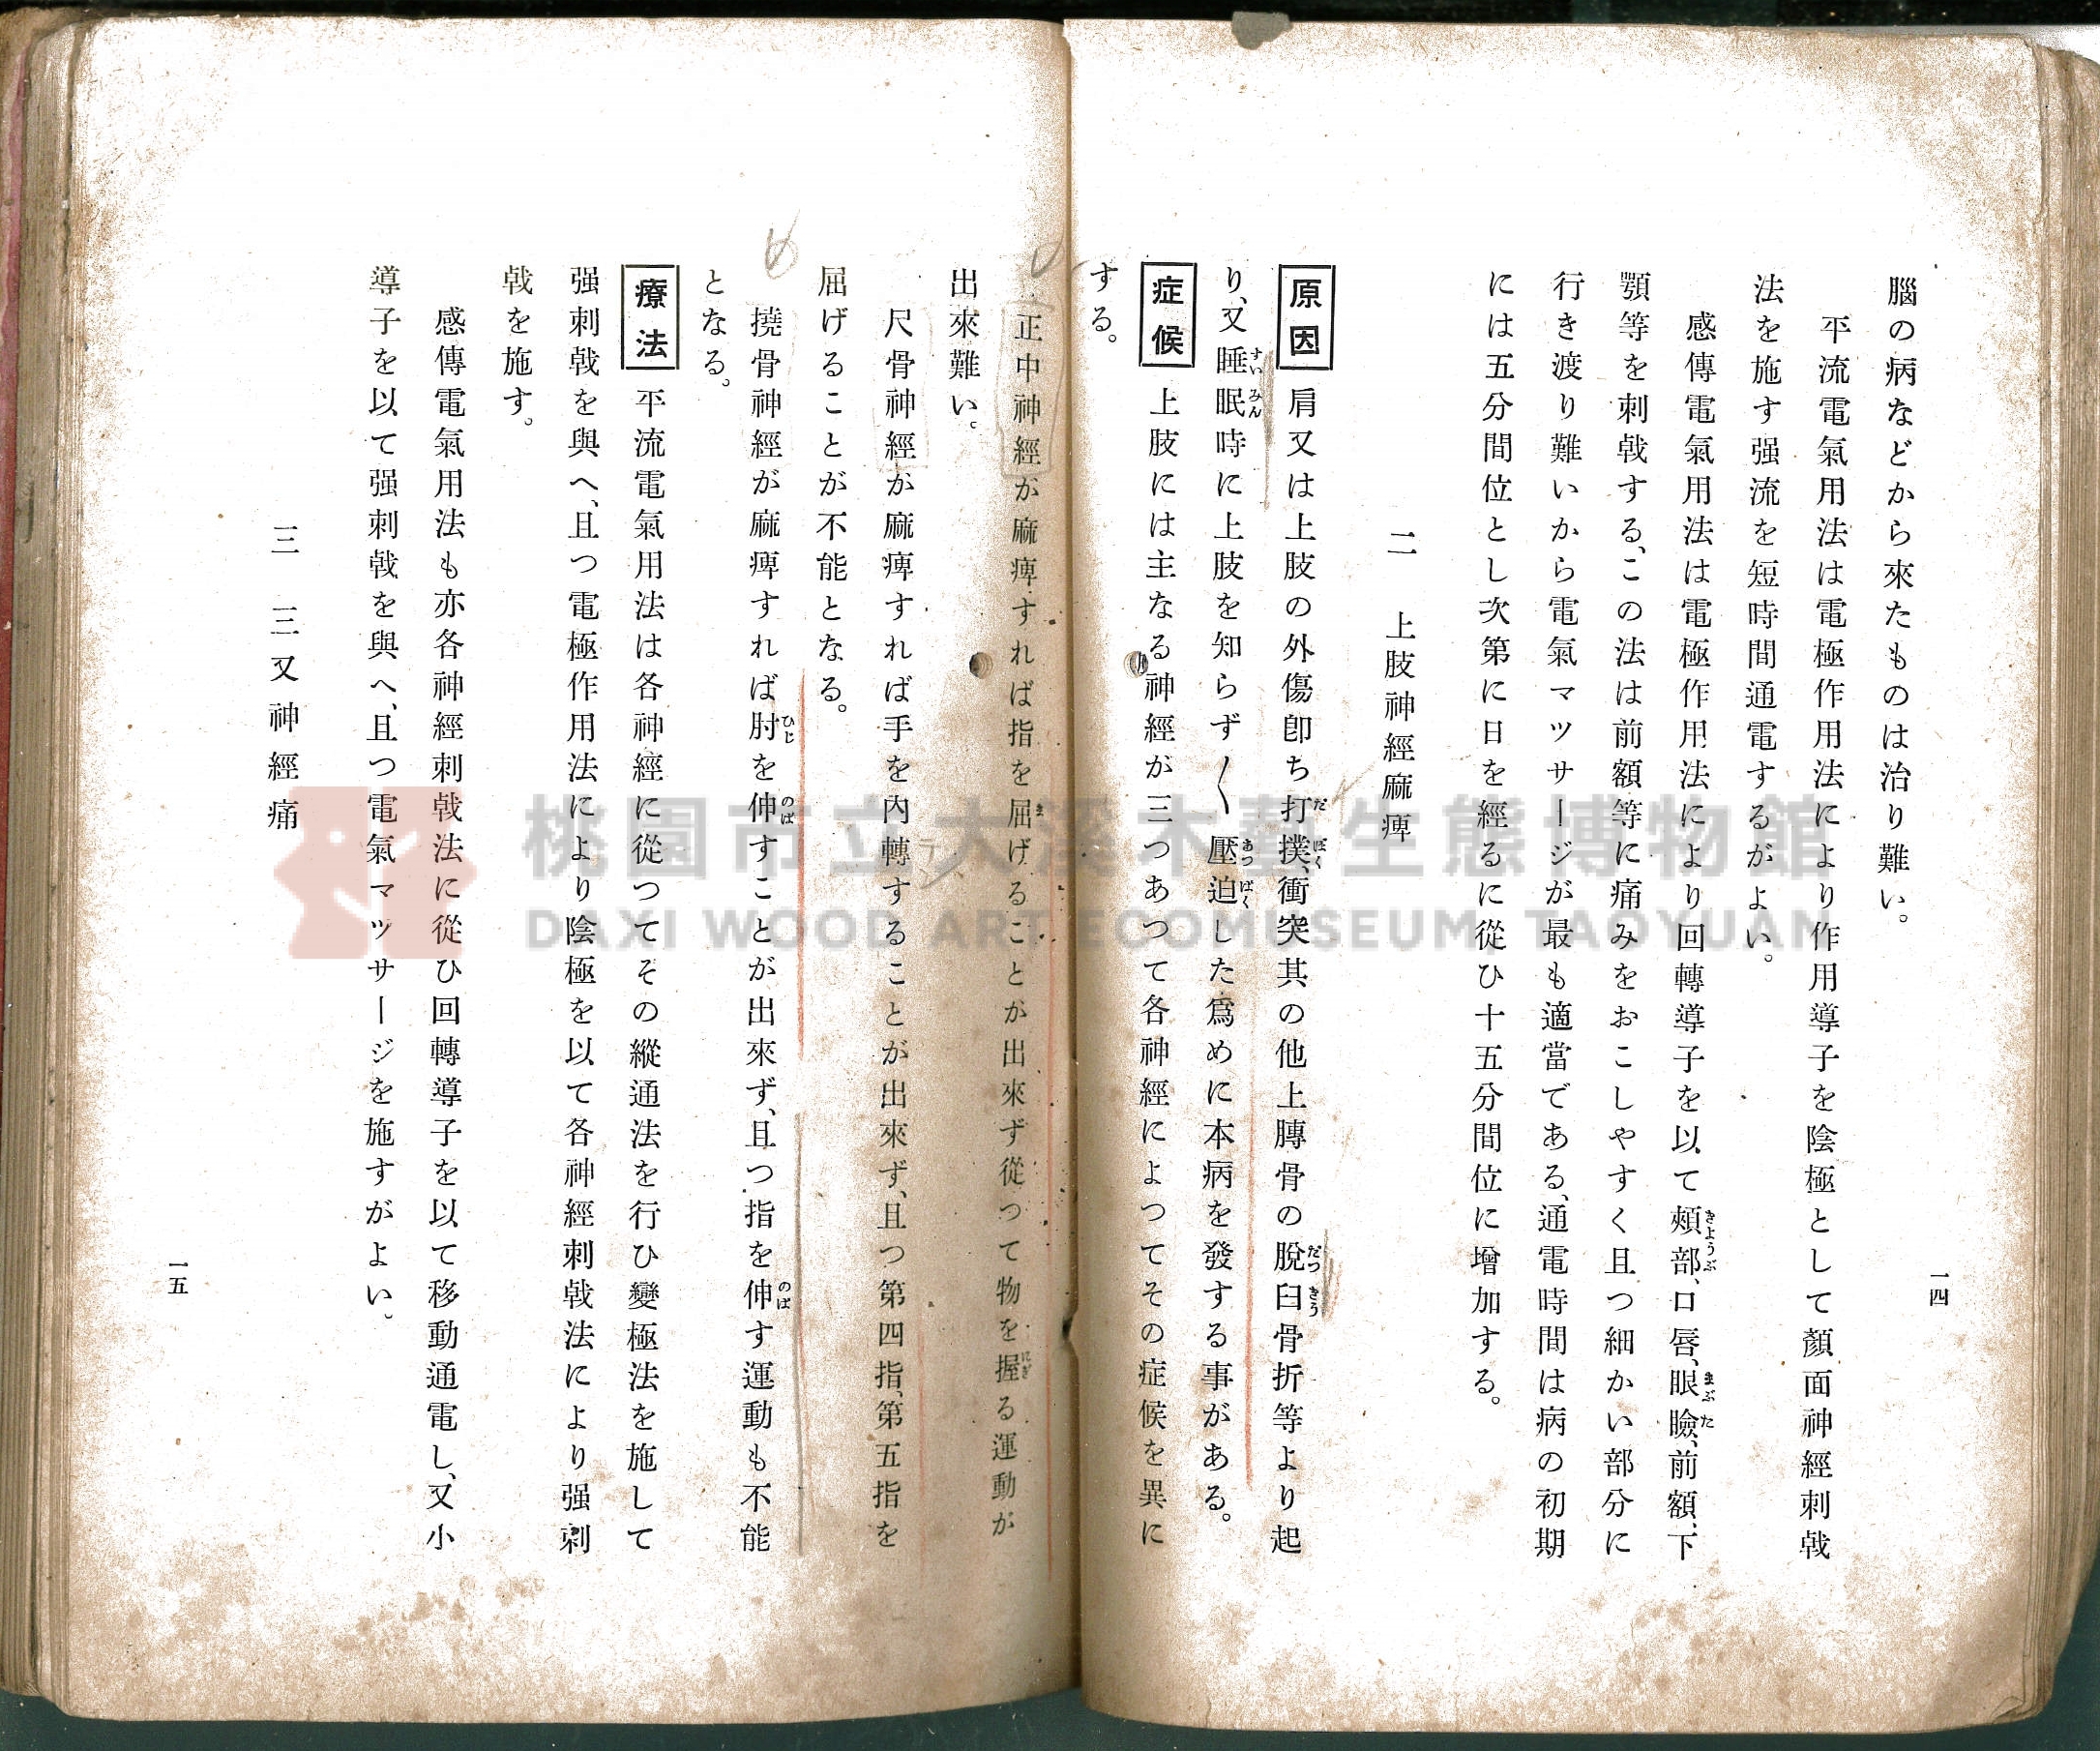 腦の病などから來たものは治り難い。
平流電氣用法は電極作用法により作用導子を陰極として顏面神經刺戟
法を施す强流を短時間通電するがよい。
感傳電氣用法は電極作用法により回轉導子を以て頰部、口唇、眼瞼、前額、下
顎等を刺戟する、この法は前額等に痛みをおこしやすく且つ細かい部分に
行き渡り難いから電氣マツサージが最も適當である、通電時間は病の初期
には五分間位とし次第に日を經るに從ひ十五分間位に增加する。
二　上肢神經麻痺
原因　肩又は上肢の外傷卽ち打撲、衝突其の他上膊骨の脫臼骨折等より起
り、又睡眠時に上肢を知らず〱壓迫した爲めに本病を發する事がある。
症候　上肢には主なる神經が三つあつて各神經によつてその症候を異に
する。
一四
正中神經が麻痺すれば指を屈げることが出來ず從つて物を握る運動が
出來難い。
尺骨神經が麻痺すれば手を內轉することが出來ず、且つ第四指、第五指を
屈げることが不能となる。
撓骨神經が麻痺すれば肘を伸すことが出來ず、且つ指を伸す運動も不能
となる。
療法　平流電氣用法は各神經に從つてその縱通法を行ひ變極法を施して
强刺戟を與へ、且つ電極作用法により陰極を以て各神經刺戟法により强刺
戟を施す。
感傳電氣用法も亦各神經刺戟法に從ひ回轉導子を以て移動通電し、又小
導子を以て强刺戟を與へ、且つ電氣マツサージを施すがよい。
三　三叉神經痛
一五
桃園市立大溪木藝生態博物館
DAXI WOOD ART ECOMUSEUM, TAOYUAN